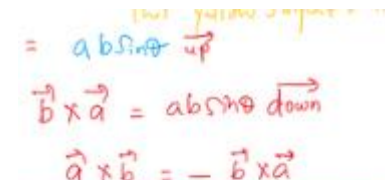 = ab sinθ \overrightarrow{up}
\vec{b} × \vec{a} = ab sinθ \overrightarrow{down}
\vec{a} × \vec{b} = - \vec{b} × \vec{a}